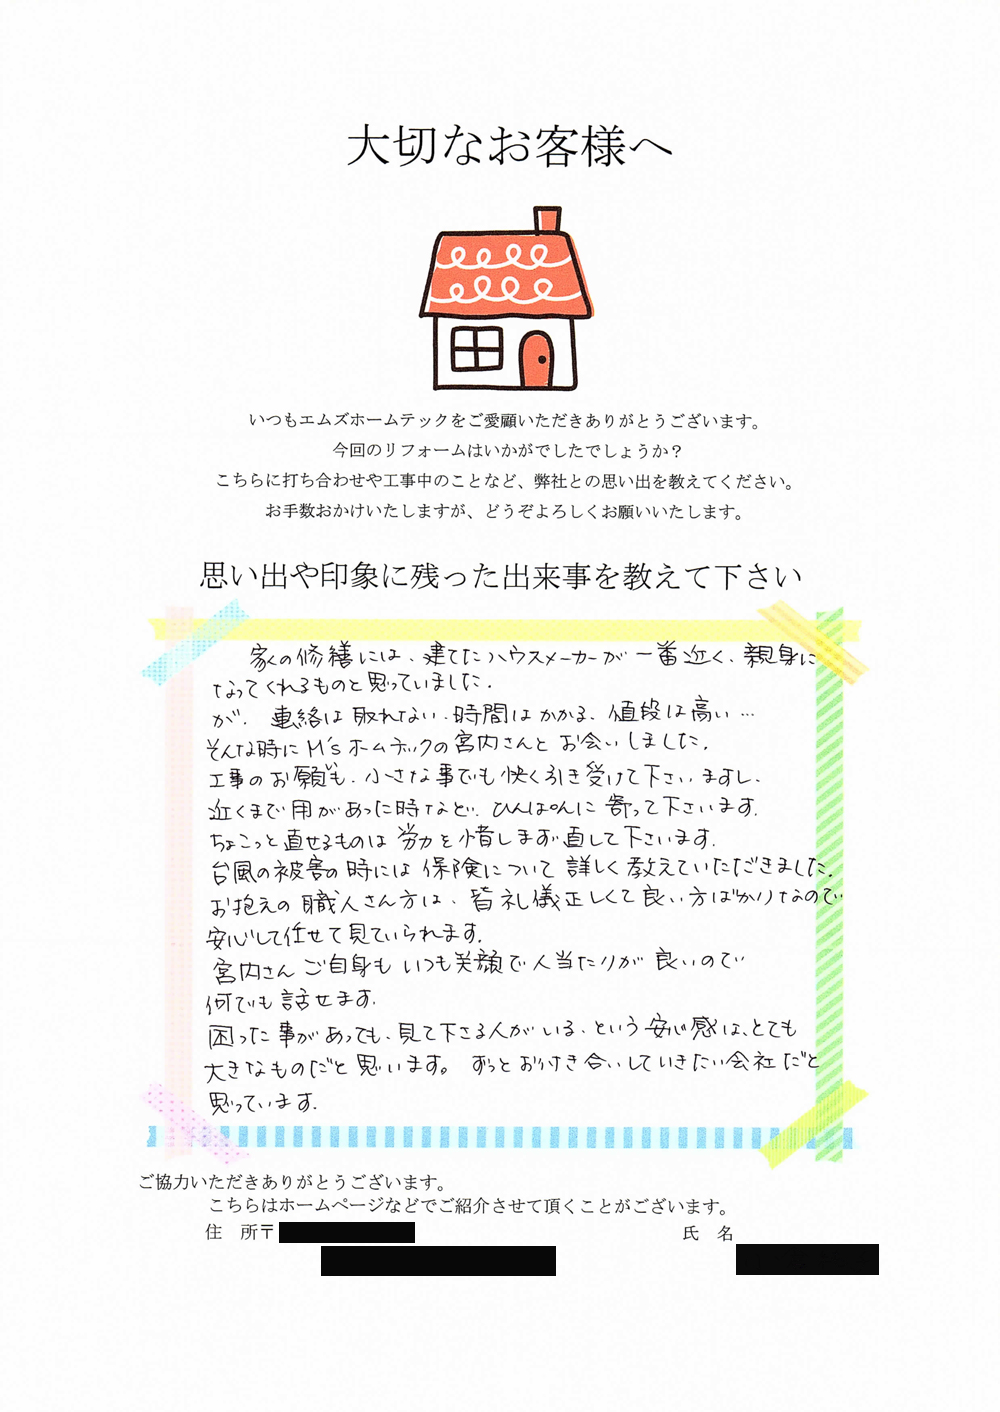 大切なお客様へ
いつもエムズホームテックをご愛顧いただきありがとうございます。
今回のリフォームはいかがでしたでしょうか？
こちらに打ち合わせや工事中のことなど、弊社との思い出を教えてください。
お手数おかけいたしますが、どうぞよろしくお願いいたします。
思い出や印象に残った出来事を教えて下さい
家の修繕には、建てたハウスメーカーが一番近く、親身に
なってくれるものと思っていました.
が、連絡は取れない、時間はかかる、値段は高い…
そんな時にM'sホームテックの宮内さんとお会いしました.
工事のお願いも、小さな事でも快く引き受けて下さいますし、
近くまで用があった時など、ひんぱんに寄って下さいます.
ちょこっと直せるものは労力を惜しまず直して下さいます.
台風の被害の時には保険について詳しく教えていただきました.
お抱えの職人さん方は、皆礼儀正しくて良い方ばかりなので
安心して任せて見ていられます.
宮内さんご自身もいつも笑顔で人当たりが良いので
何でも話せます.
困った事があっても、見て下さる人がいる、という安心感は、とても
大きなものだと思います。ずっとお付き合いしていきたい会社だと
思っています.
ご協力いただきありがとうございます。
こちらはホームページなどでご紹介させて頂くことがございます。
住　所〒
氏　名